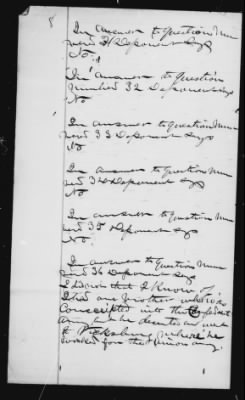 8
In answer to Question Num
bered 31 Deponent Says
No.
In answer to Question
Numbered 32 Deponent Says
No
In answer to Question Num
bered 33 Deponent Says
No
In answer to Question Num
bered 34 Deponent Says
No
In answer to Question Num
bered 35 Deponent Says
No.
In answer to Question Num
bered 36 Deponent Says
I did not that I Know of
I had one brother who was
Conscripted into the Confederate
Army but he deserted and went
to Vicksburg where he
worked for the Union army